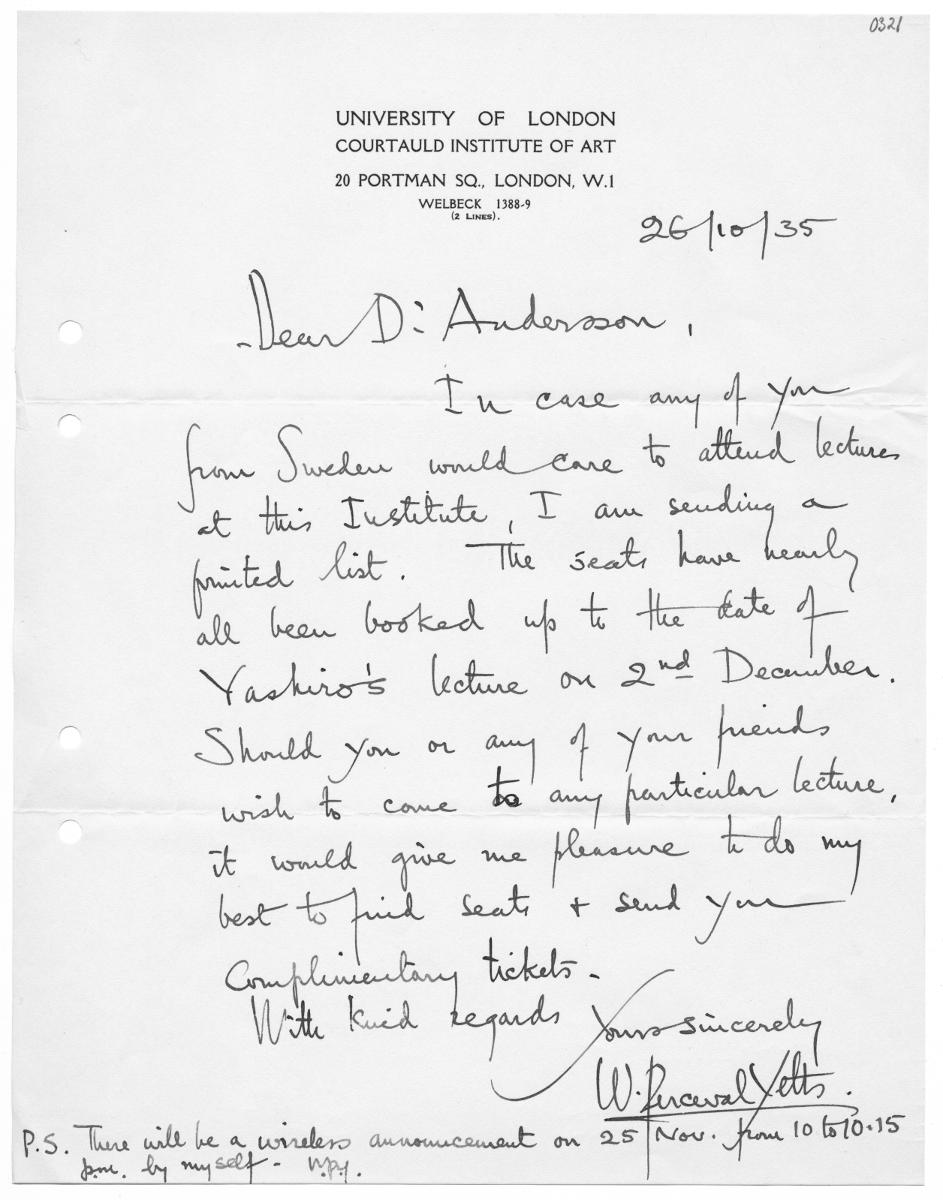 0321
UNIVERSITY OF LONDON
COURTAULD INSTITUTE OF ART
20 PORTMAN SQ., LONDON, W.1
WELBECK 1388-9
(2 LINES).
26/10/35
Dear Dr Andersson,
In case any of you
from Sweden would care to attend lectures
at this Institute, I am sending a
printed list. The seats have nearly
all been booked up to the date of
Yashiro's lecture on 2nd December.
Should you or any of your friends
wish to come to any particular lecture,
it would give me pleasure to do my
best to find seats & send you
Complimentary tickets.
With kind regards
Yours sincerely
W. Perceval Yetts.
P.S. There will be a wireless announcement on 25 Nov. from 10 to 10.15
p.m. by myself - W.P.Y.